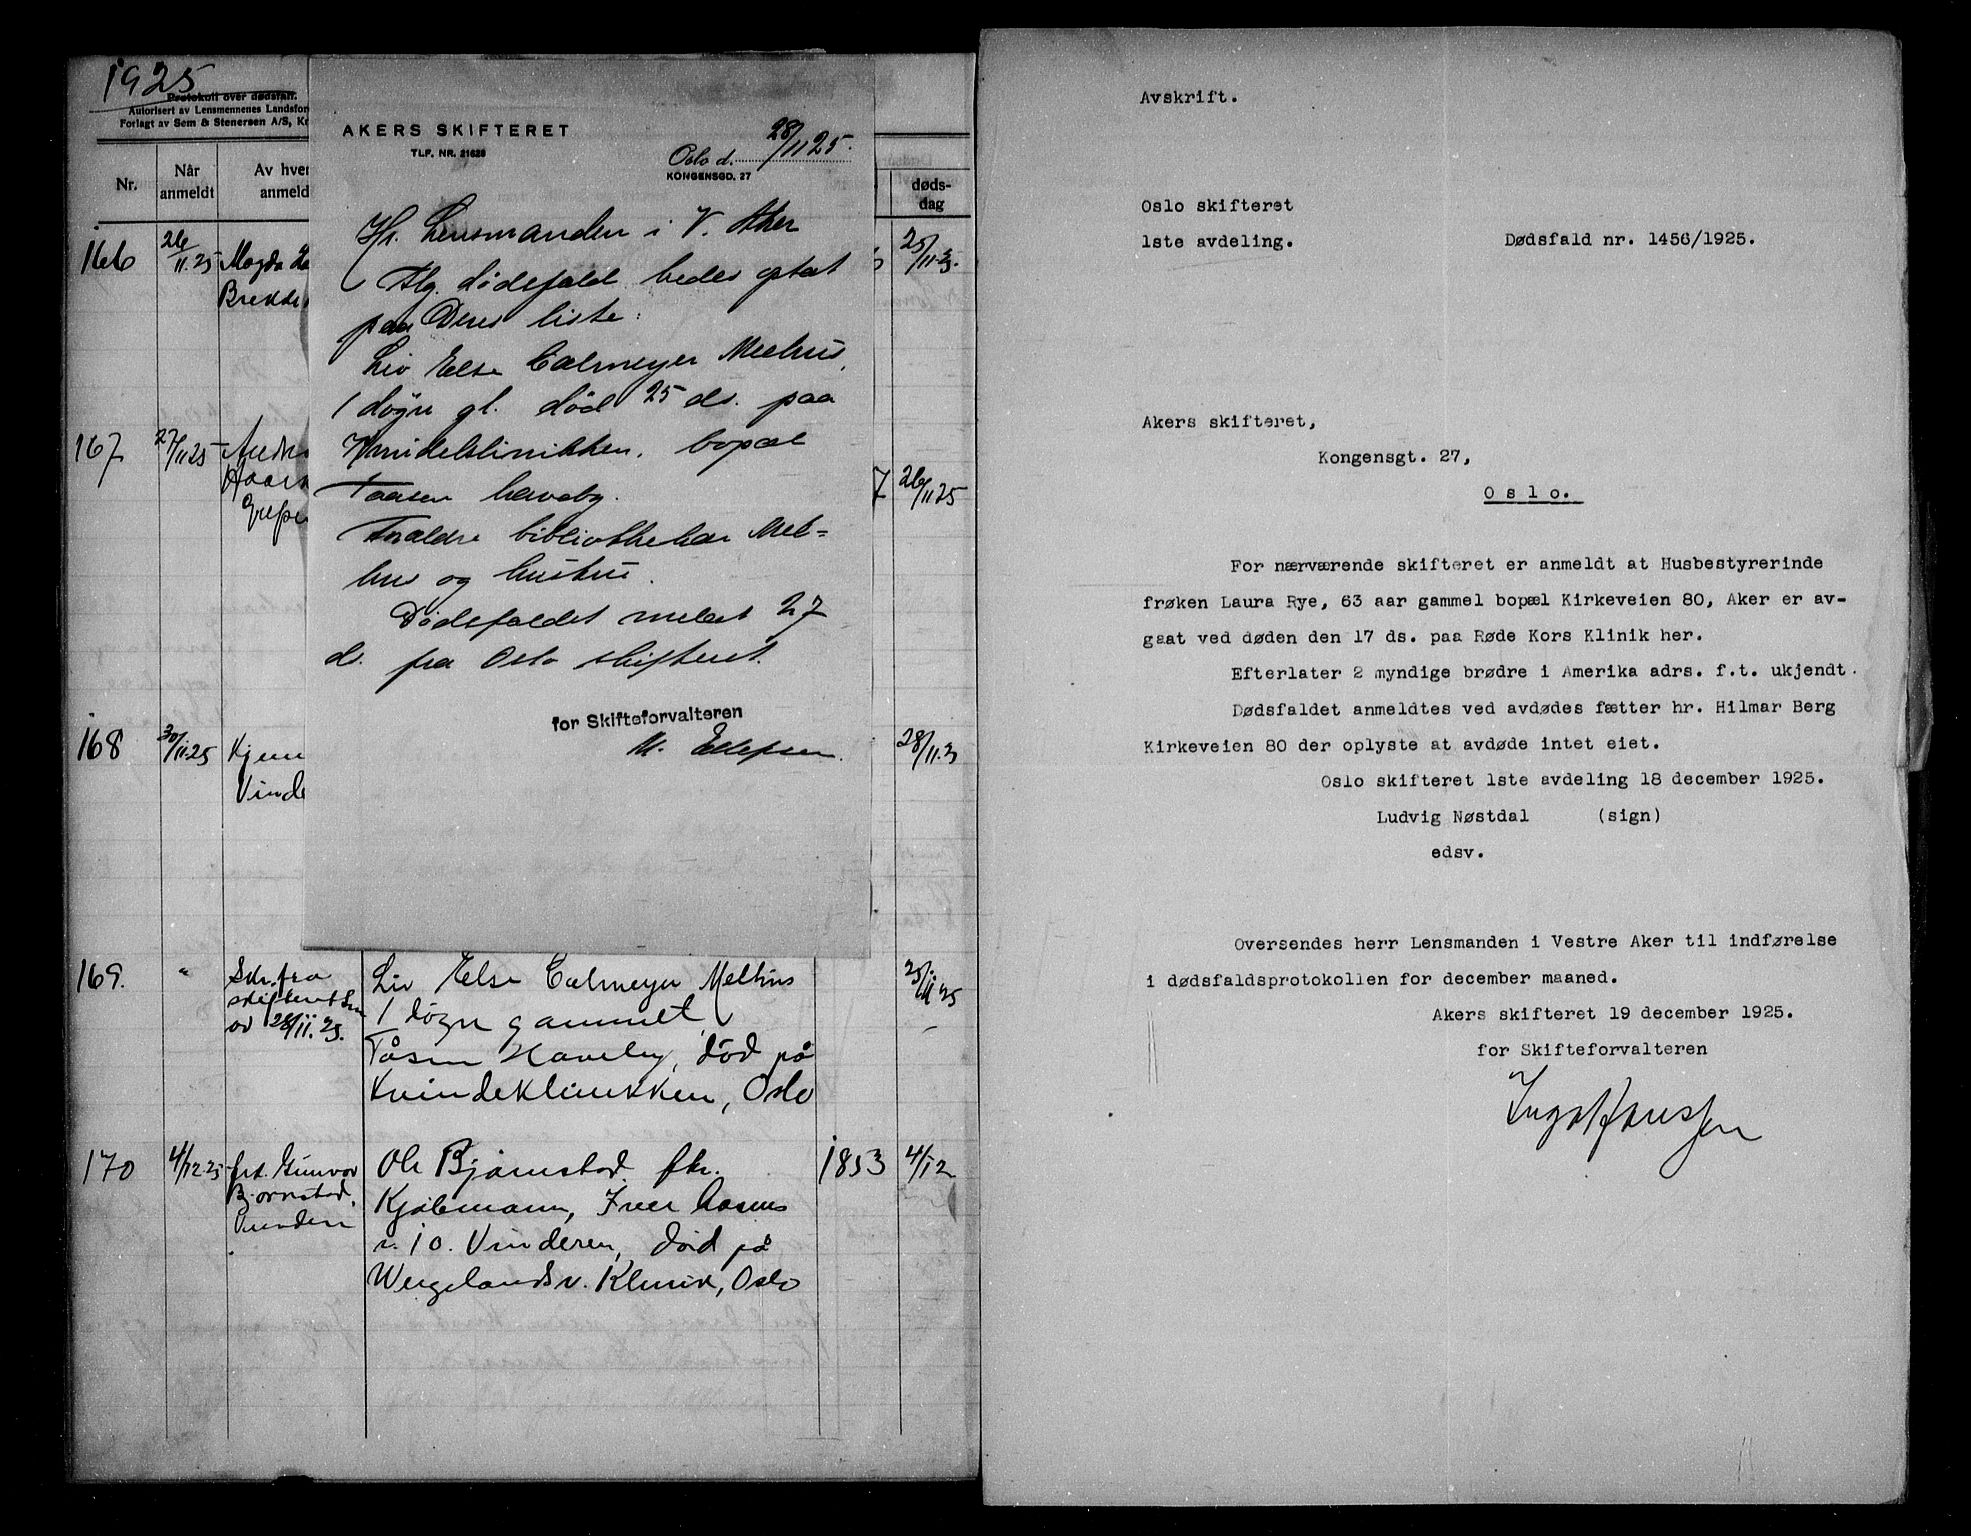 1925
Protokoll over dødsfall.
Autorisert av Lensmennenes Landsfor
Forlagt av Sem & Stenersen A/S, Kr
Nr.
Når
anmeldt
Av hver
anmeld
døds-
dag
166
26/11.25
Magda
Brekke
25/11.25
167
27/11 25
26/11 25
168
30/11.25
Vinde
28/11.25
AKERS SKIFTERET
TLF. NR. 21628
Oslo d. 28/11 25.
KONGENSGD. 27
Hr. Lensmanden i V. Aker
Flg. dødsfald bedes optat
paa Deres liste:
Liv Else Calmeyer Melhus,
1 døgn gl. død 25 ds. paa
Kvindeklinikken. bopæl
Taasen haveby.
Forældre bibliothekar Mel=
hus og hustru.
Dødsfaldet meldt 27
ds. fra Oslo skifteret.
for Skifteforvalteren
M. Ellefsen.
169.
"
Skr. fra
skifteret
av 28/11.25.
Liv Else Calmeyer Melhus
1 døgn gammel,
Tåsen Haveby, død på
Kvindeklinikken, Oslo
25/11 25
170
4/12 25
frk. Gunvor
Bjørnstad,
Vinderen
Ole Bjørnstad, fhv.
Kjøbmann, Iver Aasens
v. 10. Vinderen, død på
Wergelandsv. Klinik, Oslo
1853
4/12
Avskrift.
Oslo skifteret
1ste avdeling.
Dødsfald nr. 1456/1925.
Akers skifteret,
Kongensgt. 27,
Oslo.
For nærværende skifteret er anmeldt at Husbestyrerinde
frøken Laura Rye, 63 aar gammel bopæl Kirkeveien 80, Aker er av-
gaat ved døden den 17 ds. paa Røde Kors Klinik her.
Efterlater 2 myndige brødre i Amerika adrs. f.t. ukjendt.
Dødsfaldet anmeldtes ved avdødes fætter hr. Hilmar Berg
Kirkeveien 80 der oplyste at avdøde intet eiet.
Oslo skifteret 1ste avdeling 18 december 1925.
Ludvig Nøstdal (sign)
edsv.
Oversendes herr Lensmanden i Vestre Aker til indførelse
i dødsfaldsprotokollen for december maaned.
Akers skifteret 19 december 1925.
for Skifteforvalteren
Inga Hanssen